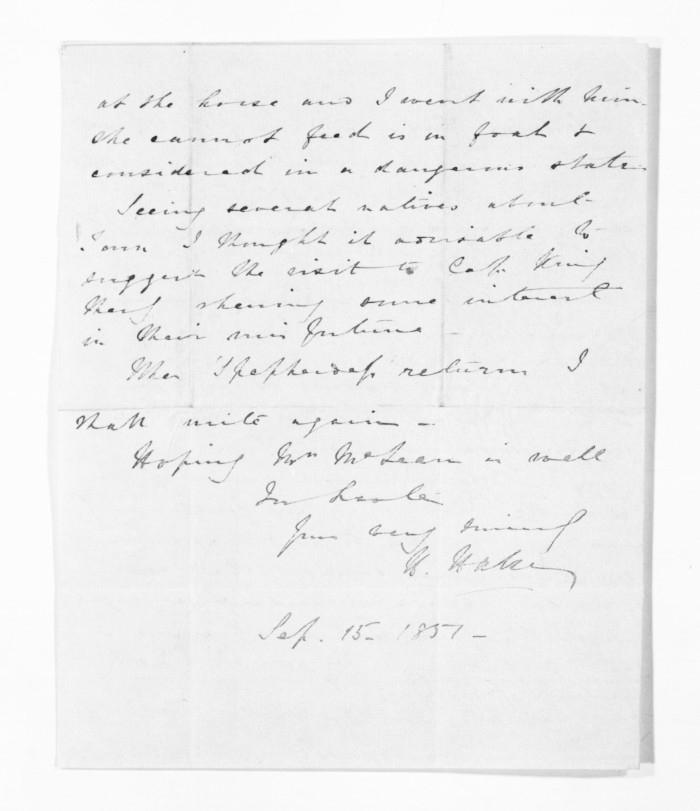 at the house and I went with him.
she cannot feed is in foal &
considered in a dangerous state
Seeing several natives about
Town I thought it advisable to
suggest the visit to Capt King
they shewing some interest
in their misfortune -
When returns I
shall write again -
Hoping Mrs McLean is well
In haste
Yours very sincerely
H.
Sep. 15 - 1851 -